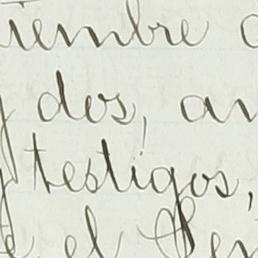 iembre
y dos, an
testigos,
el Sen